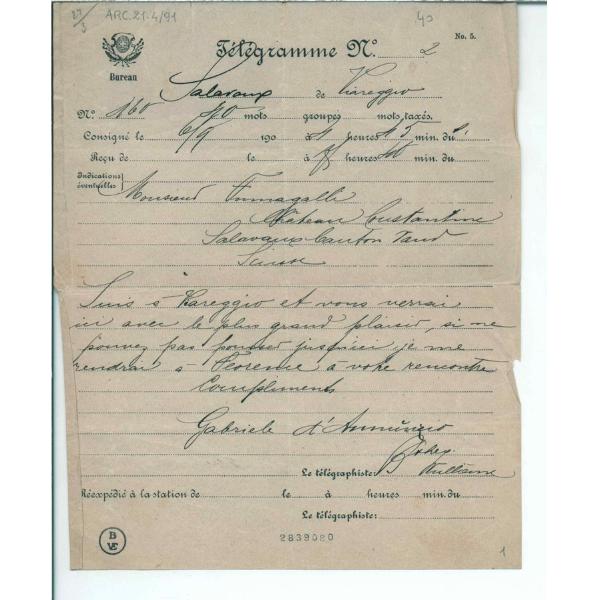 27/3 ARC.21.4/91 40
Télégramme Nº. 2 No. 5.
Bureau
Salavaux de Viareggio
Nº. 160 40 mots groupés mots taxés.
Consigné le 6/9 190 à heures 45 min. du
Reçu de le à 8 heures 40 min. du
Indications éventuelles
Monsieur Fumagalli
Château Constantine
Salavaux Canton Vaud
Suisse
Suis à Viareggio et vous verrai
ici avec le plus grand plaisir, si ne
pouvez pas pousser jusqu'ici je me
rendrai à Florence à votre rencontre
Compliments
Gabriele d'Annunzio
Le télégraphiste:
Réexpédié à la station de le à heures min. du
Le télégraphiste:
B VE
2839020
1